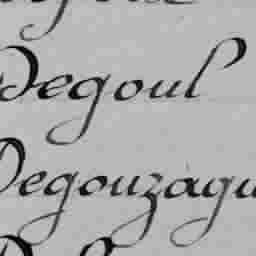 Degoul
Degouzagu